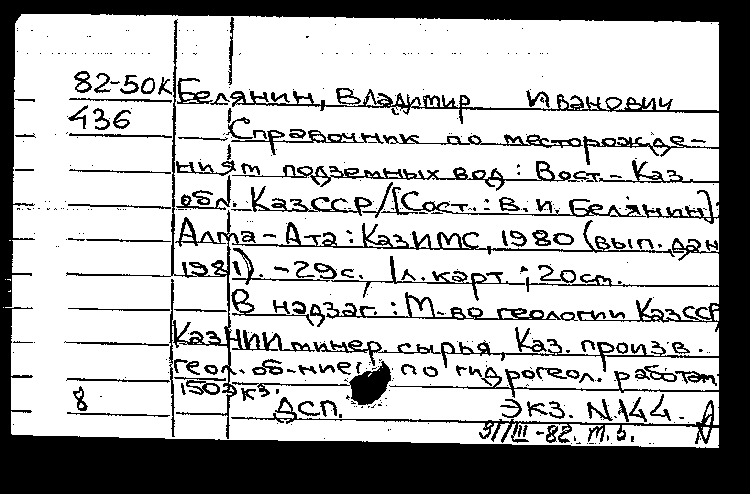 82-50к Белянин, Владимир Иванович
436 Справочник по месторожде-
ниям подземных вод: Вост.-Каз.
обл. КазССР/[Сост.: В. И. Белянин];
Алма-Ата: КазИМС, 1980 (вып. дан
1981). -29с., 1л. карт.; 20см.
В надзаг.: М-во геологии КазССР,
КазНИИ минер. сырья, Каз. произв.
геол. об-ние по гидрогеол. работам
150 экз.
8 ДСП. Экз. N144.
31/III-82.